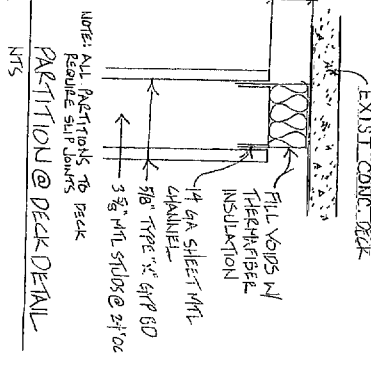 EXIST CONC. DECK
FILL VOIDS W/
THERMAFIBER
INSULATION
14 GA SHEET MTL
CHANNEL
5/8" TYPE "X" GYP BD
3 5/8" MTL STUDS @ 24" OC
NOTE: ALL PARTITIONS TO DECK
REQUIRE SLIP JOINTS
PARTITION @ DECK DETAIL
NTS